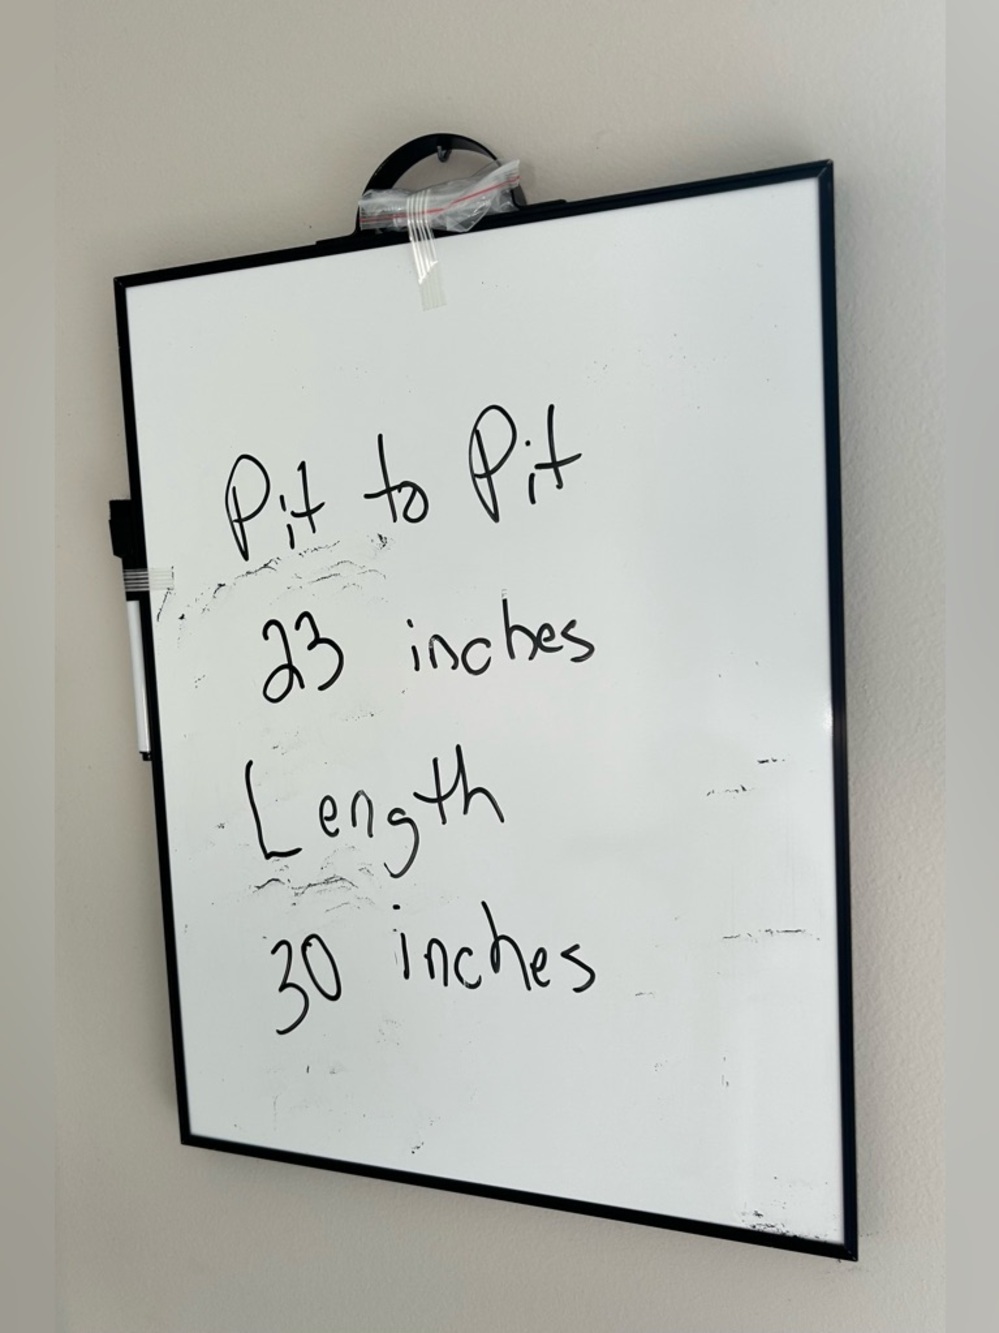 Pit to Pit
23 inches
Length
30 inches